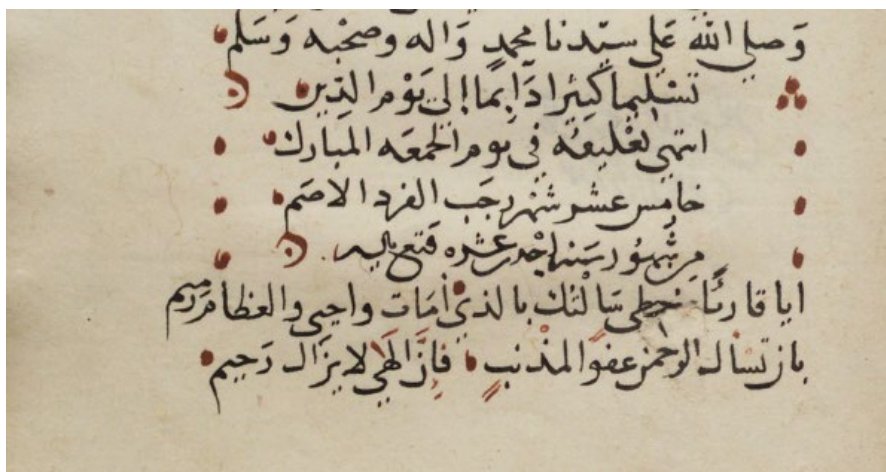 وَصلى الله عَلى سيّدنا محمدٍ وَاله وصحْبه وَسَلم
تسْليما كثيرا دَايمًا إلي يَوْم الدّين
انتهى تعْليقه في يَوم الجمعَه المبَارك
خامس عشر شهر رجَب الفرد الاصَم
من شُهور سَنه احْدى عشْره
ايا قارئًا خطى سَالتك بالذي أمَات واحيى والعظام رميم
بان تسْال الرحمن عفوًا لمذْنب فانَّ الهَي لا يزَال رَحيم